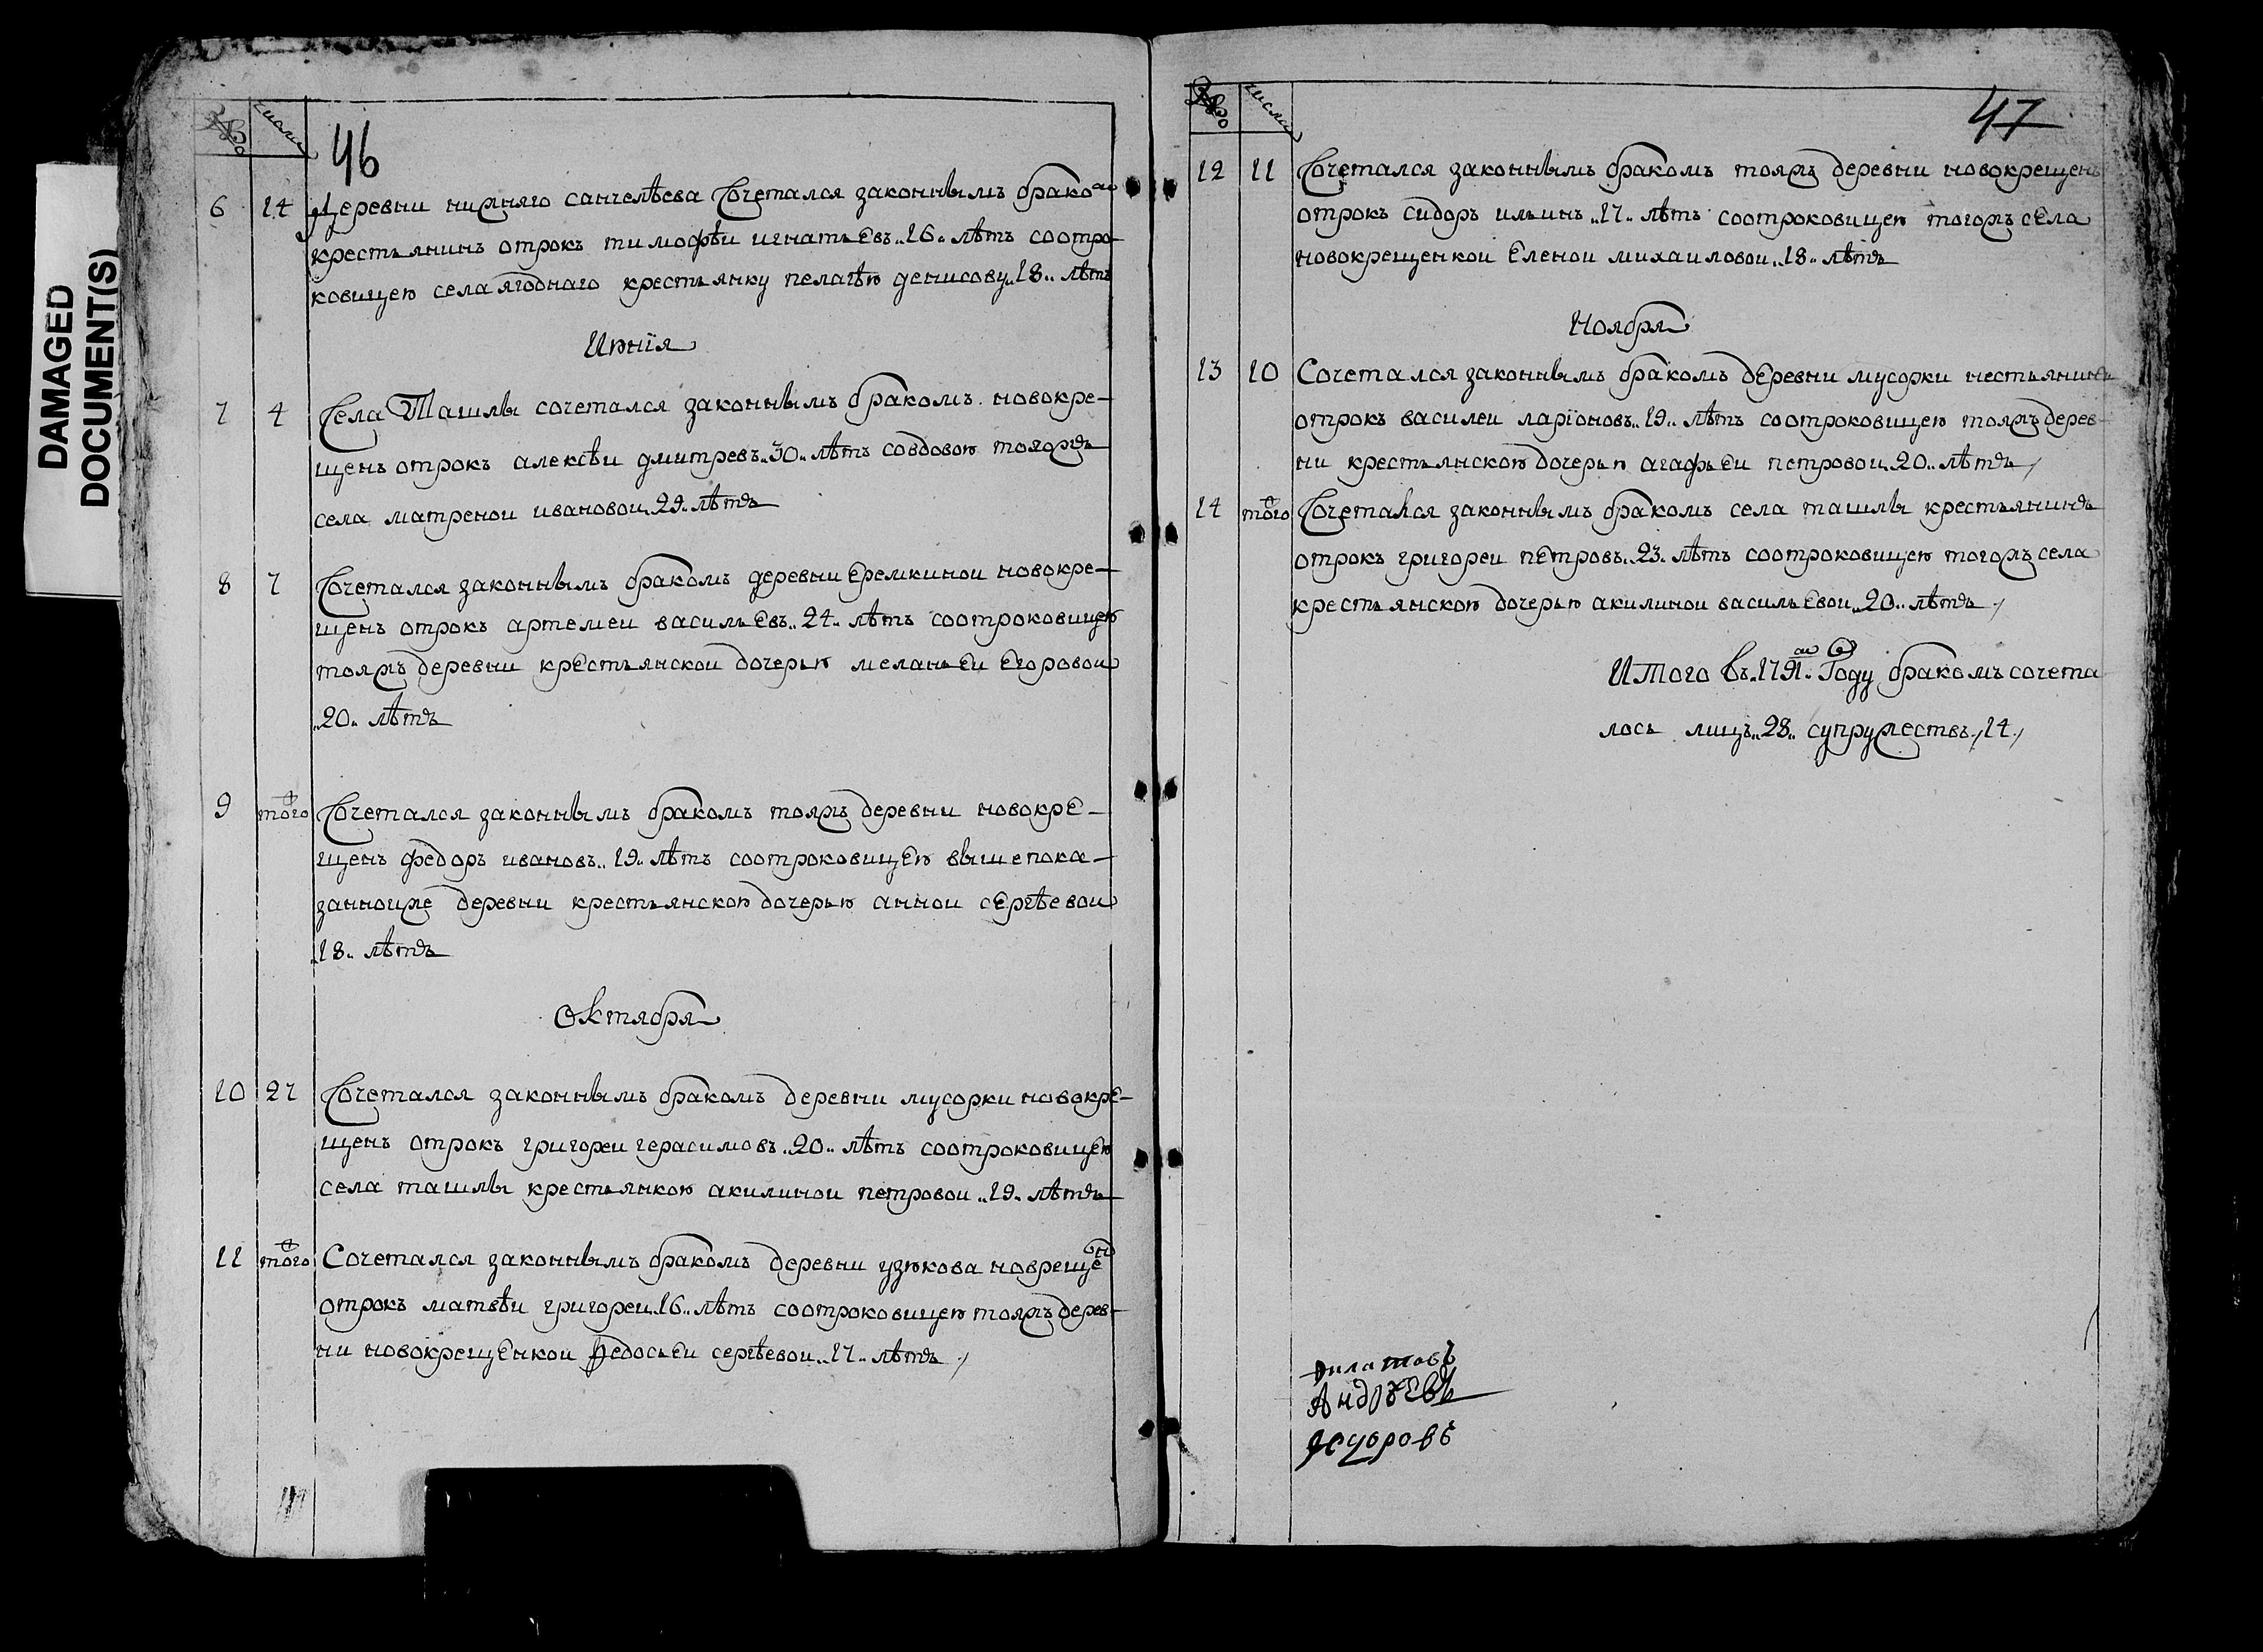 DAMAGED
DOCUMENT(S)
№ числа
46
6 14 Деревни нижняго санчелѣева Сочетался законнымъ бракомъ
крестьянинъ отрокъ тимофѣи игнатьевъ 16 лѣтъ соотро-
ковицею села ягоднаго крестьянку пелагѣю денисову 18 лѣтъ
Июнїя
7 4 Села Ташлы сочетался законнымъ бракомъ новокре-
щенъ отрокъ алексѣи дмитревъ 30 лѣтъ совдовою тогожъ
села матреной ивановои 29 лѣтъ
8 7 Сочетался законнымъ бракомъ деревни Еремкинои новокре-
щенъ отрокъ артемеи васильевъ 24 лѣтъ соотроковицею
тояжъ деревни крестьянскои дочерью меланьеи Егоровои
20 лѣтъ
9 того Сочетался законнымъ бракомъ тояжъ деревни новокре-
щенъ федоръ ивановъ 19 лѣтъ соотроковицею вышепока-
заннои же деревни крестьянскою дочерью аннои сергѣевои
18 лѣтъ
Октября
10 27 Сочетался законнымъ бракомъ деревни мусорки новокре-
щенъ отрокъ григореи герасимовъ 20 лѣтъ соотроковицею
села ташлы крестьянкою акилинои петровои 19 лѣтъ
11 того Сочетался законнымъ бракомъ деревни узюкова новрещен
отрокъ матвѣи григореи 16 лѣтъ соотроковицею тояжъ дерев-
ни новокрещенкои Федосьеи сергѣевои 17 лѣтъ
№ числа
47
12 11 Сочетался законнымъ бракомъ тояжъ деревни новокрещенъ
отрокъ сидоръ ильинъ 17 лѣтъ соотроковицею тогожъ села
новокрещенкои Еленои михаиловои 18 лѣтъ
Ноября
13 10 Сочетался законнымъ бракомъ деревни мусорки нестьянинъ
отрокъ василеи ларїоновъ 19 лѣтъ соотроковицею тояжъ дерев-
ни крестьянскою дочерью агафьеи петровои 20 лѣтъ
14 того Сочетался законнымъ бракомъ села ташлы крестьянинъ
отрокъ григореи петровъ 23 лѣтъ соотроковицею тогожъ села
крестьянскою дочерью акилинои васильевои 20 лѣтъ
Итого въ Году бракомъ сочета
лось лицъ 28 супружествъ 14
Филатовъ
Андрѣевъ